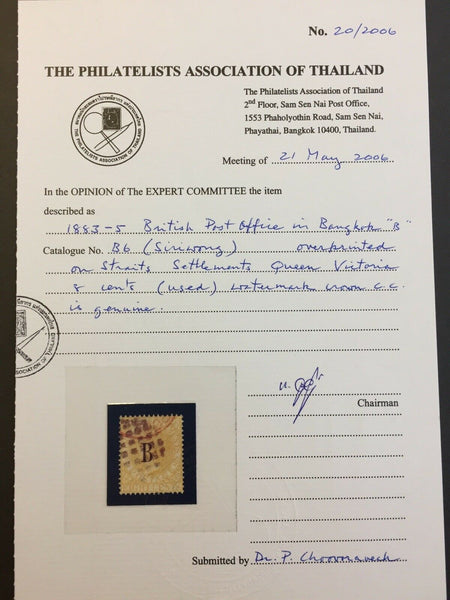 No. 20/2006
THE PHILATELISTS ASSOCIATION OF THAILAND
The Philatelists Association of Thailand
2nd Floor, Sam Sen Nai Post Office,
1553 Phaholyothin Road, Sam Sen Nai,
Phayathai, Bangkok 10400, Thailand.
THE PHILATELISTS ASSOCIATION OF THAILAND
Meeting of 21 May 2006
In the OPINION of The EXPERT COMMITTEE the item
described as
1883-5 British Post Office in Bangkok "B"
Catalogue No. B6 (Siriwong) overprinted
on Straits Settlements Queen Victoria
8 cents (used) watermark crown c.c.
is genuine.
ASSOCIATION OF THAILAND
Chairman
B
Submitted by Dr. P. Choonnavech